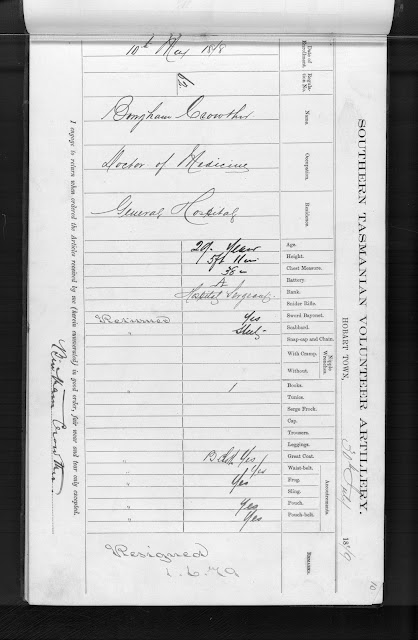 SOUTHERN TASMANIAN VOLUNTEER ARTILLERY.
HOBART TOWN, 30th July 18
10
Date of Enrolment. 10th May 1878
Regulation No. 62
Name Bingham Crowther
Occupation. Doctor of Medicine
Residence General Hospital
Age. 29 Years
Height. 5ft 11in
Chest Measure. 38in
Battery. A
Rank. Hospital Sergeant
Snider Rifle.
Sword Bayonet. Yes Returned
Scabbard. Steel "
Snap-cap and Chain.
Nipple Wrenches.
With Cramp.
Without.
Books. 1 "
Tunics.
Serge Frock.
Cap.
Trousers.
Leggings.
Great Coat. Yes "
Accoutrements.
Waist-belt. Yes "
Frog. Yes "
Sling.
Pouch. Yes "
Pouch-belt. Yes "
Remarks. Resigned
1.6.79
I engage to return when ordered the Articles received by me (herein enumerated) in good order, fair wear and tear only excepted.
Bingham Crowther.